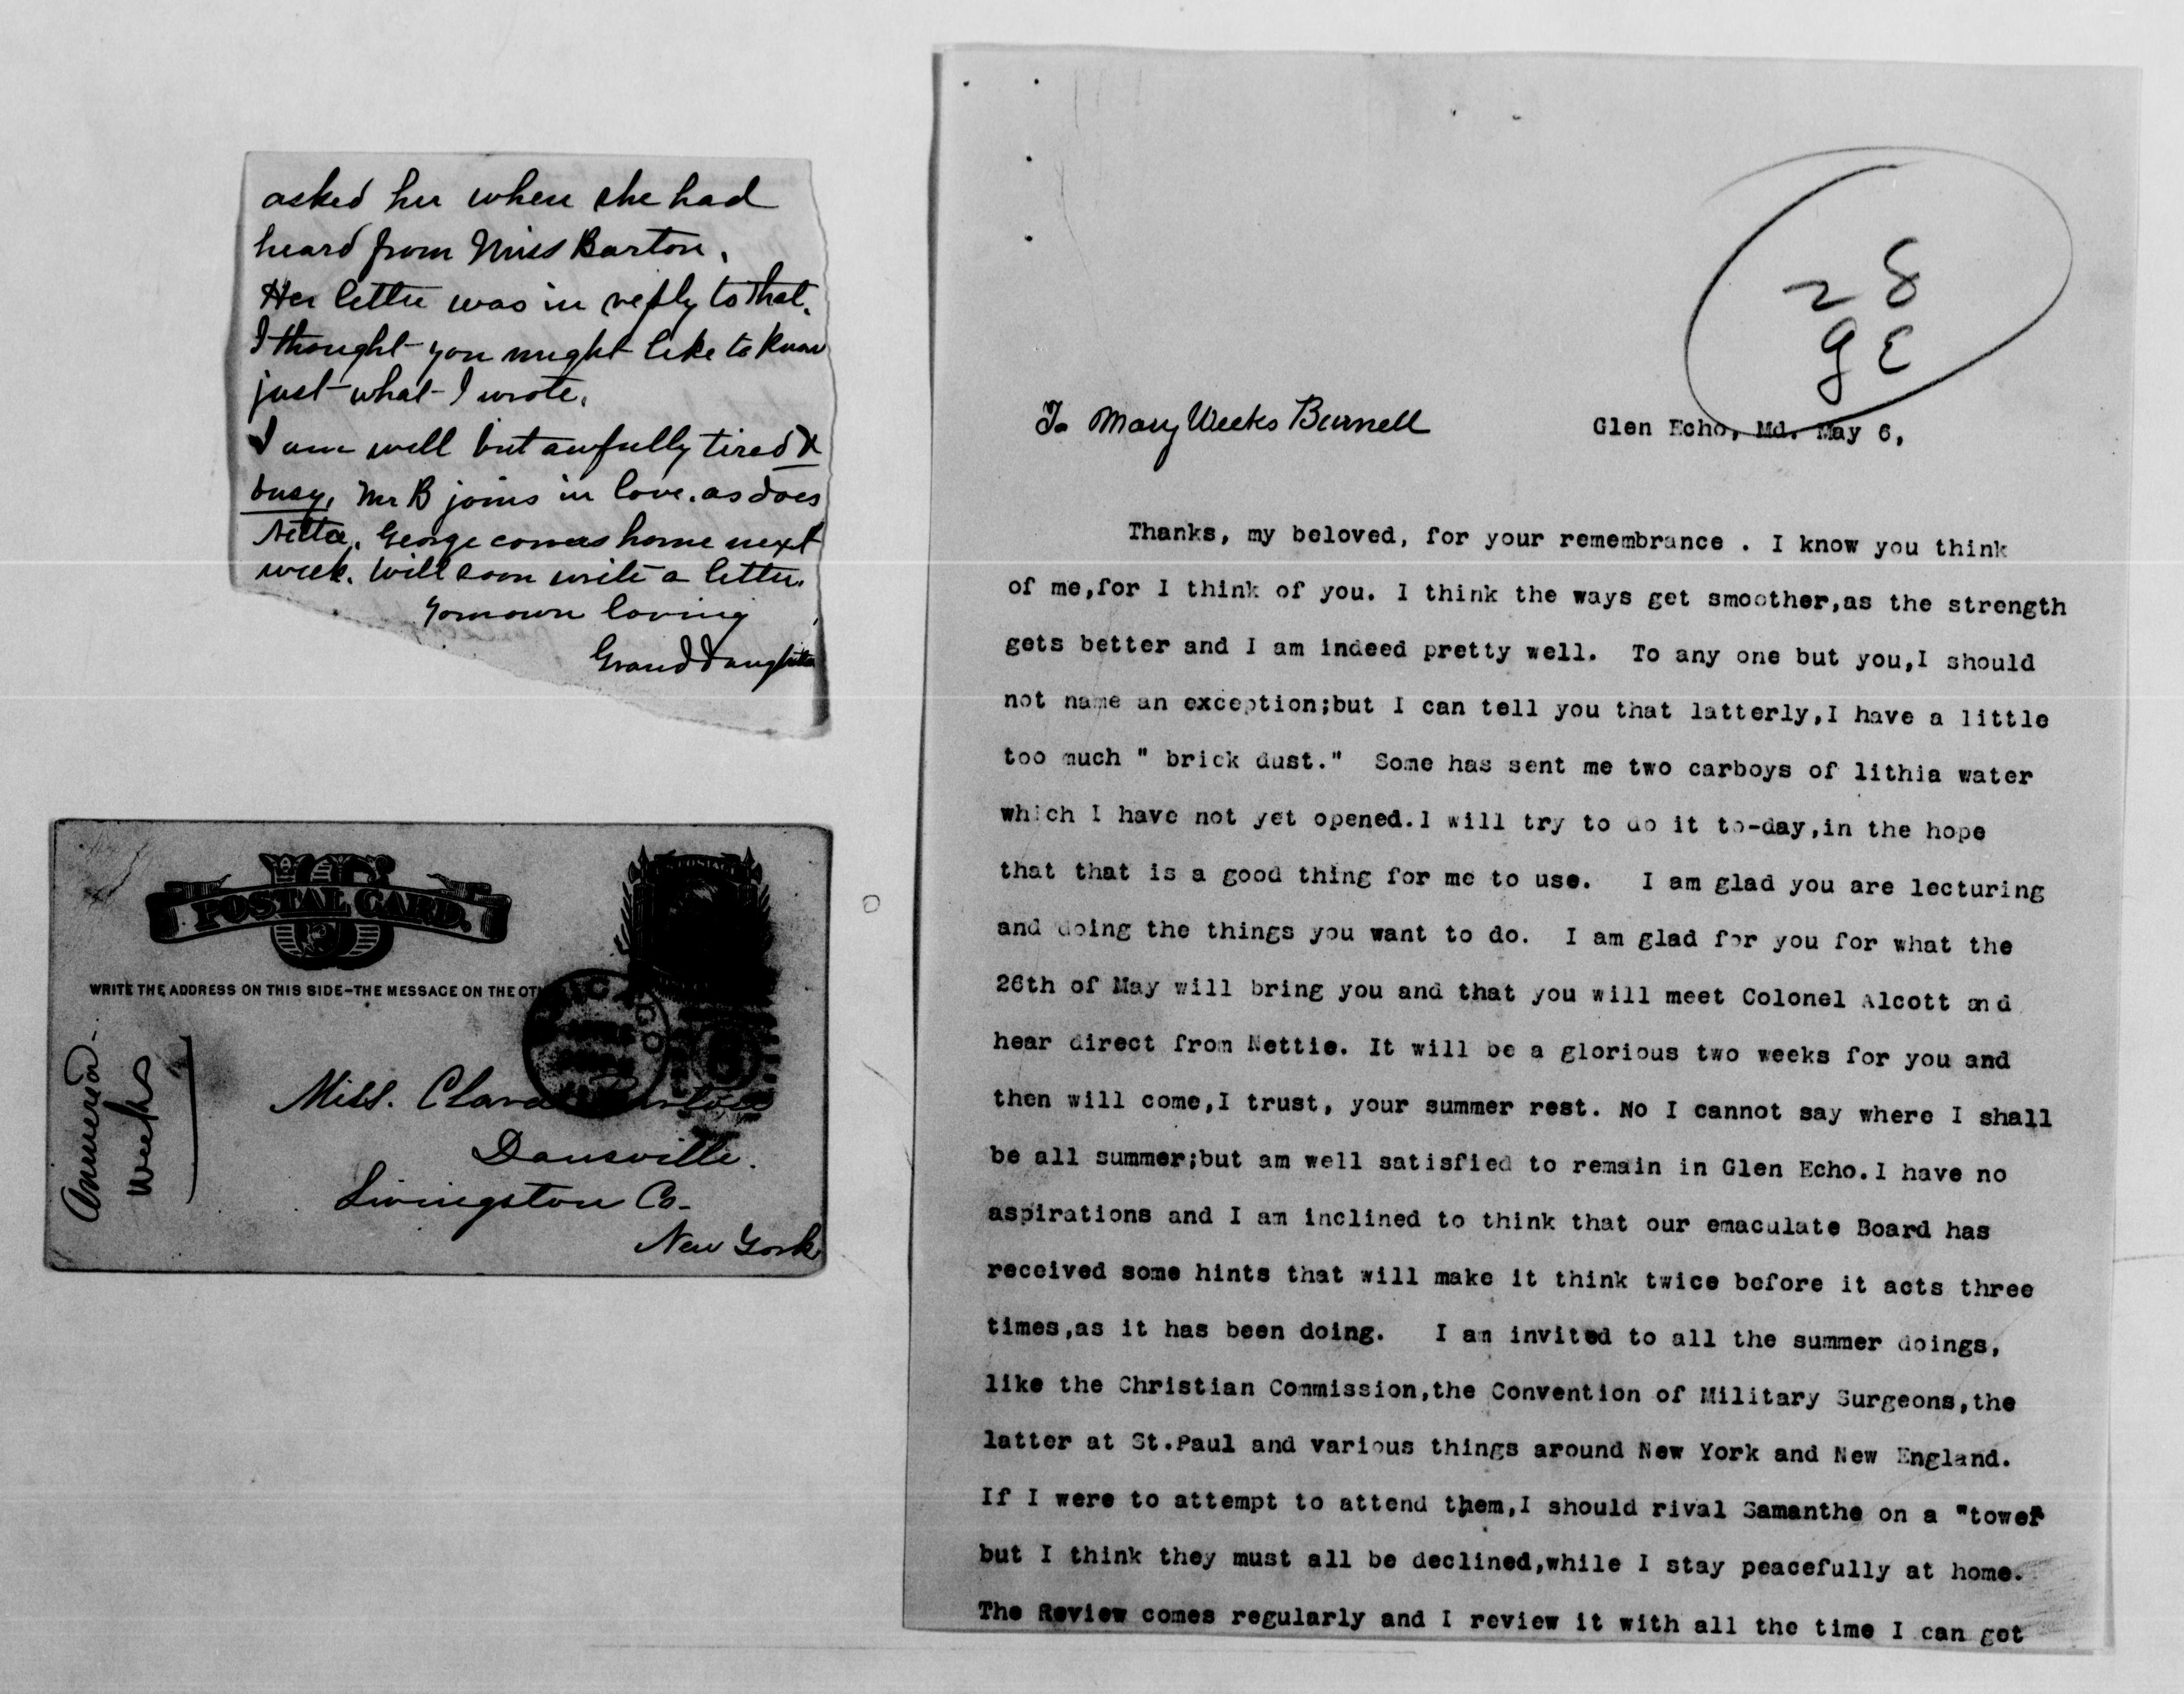 asked her when she had
heard from Miss Barton.
Her letter was in reply to that.
I thought you might like to know
just what I wrote.
I am well but awfully tired &
busy. Mr B joins in love. as does
Netta. George comes home next
week. Will soon write a letter.
Your own loving
Granddaughter
POSTAL CARD.
WRITE THE ADDRESS ON THIS SIDE-THE MESSAGE ON THE OT
Weeks
Miss. Clara Barton
Dansville.
Livingston Co.
New York
28
GE
To Mary Weeks Burnell
Glen Echo, Md. May 6,
Thanks, my beloved, for your remembrance . I know you think
of me,for I think of you. I think the ways get smoother,as the strength
gets better and I am indeed pretty well. To any one but you,I should
not name an exception;but I can tell you that latterly,I have a little
too much " brick dust." Some has sent me two carboys of lithia water
which I have not yet opened.I will try to do it to-day,in the hope
that that is a good thing for me to use. I am glad you are lecturing
and doing the things you want to do. I am glad for you for what the
26th of May will bring you and that you will meet Colonel Alcott and
hear direct from Nettie. It will be a glorious two weeks for you and
then will come,I trust, your summer rest. No I cannot say where I shall
be all summer;but am well satisfied to remain in Glen Echo.I have no
aspirations and I am inclined to think that our emaculate Board has
received some hints that will make it think twice before it acts three
times,as it has been doing. I am invited to all the summer doings,
like the Christian Commission,the Convention of Military Surgeons,the
latter at St.Paul and various things around New York and New England.
If I were to attempt to attend them,I should rival Samanthe on a "tower
but I think they must all be declined,while I stay peacefully at home.
The Review comes regularly and I review it with all the time I can get